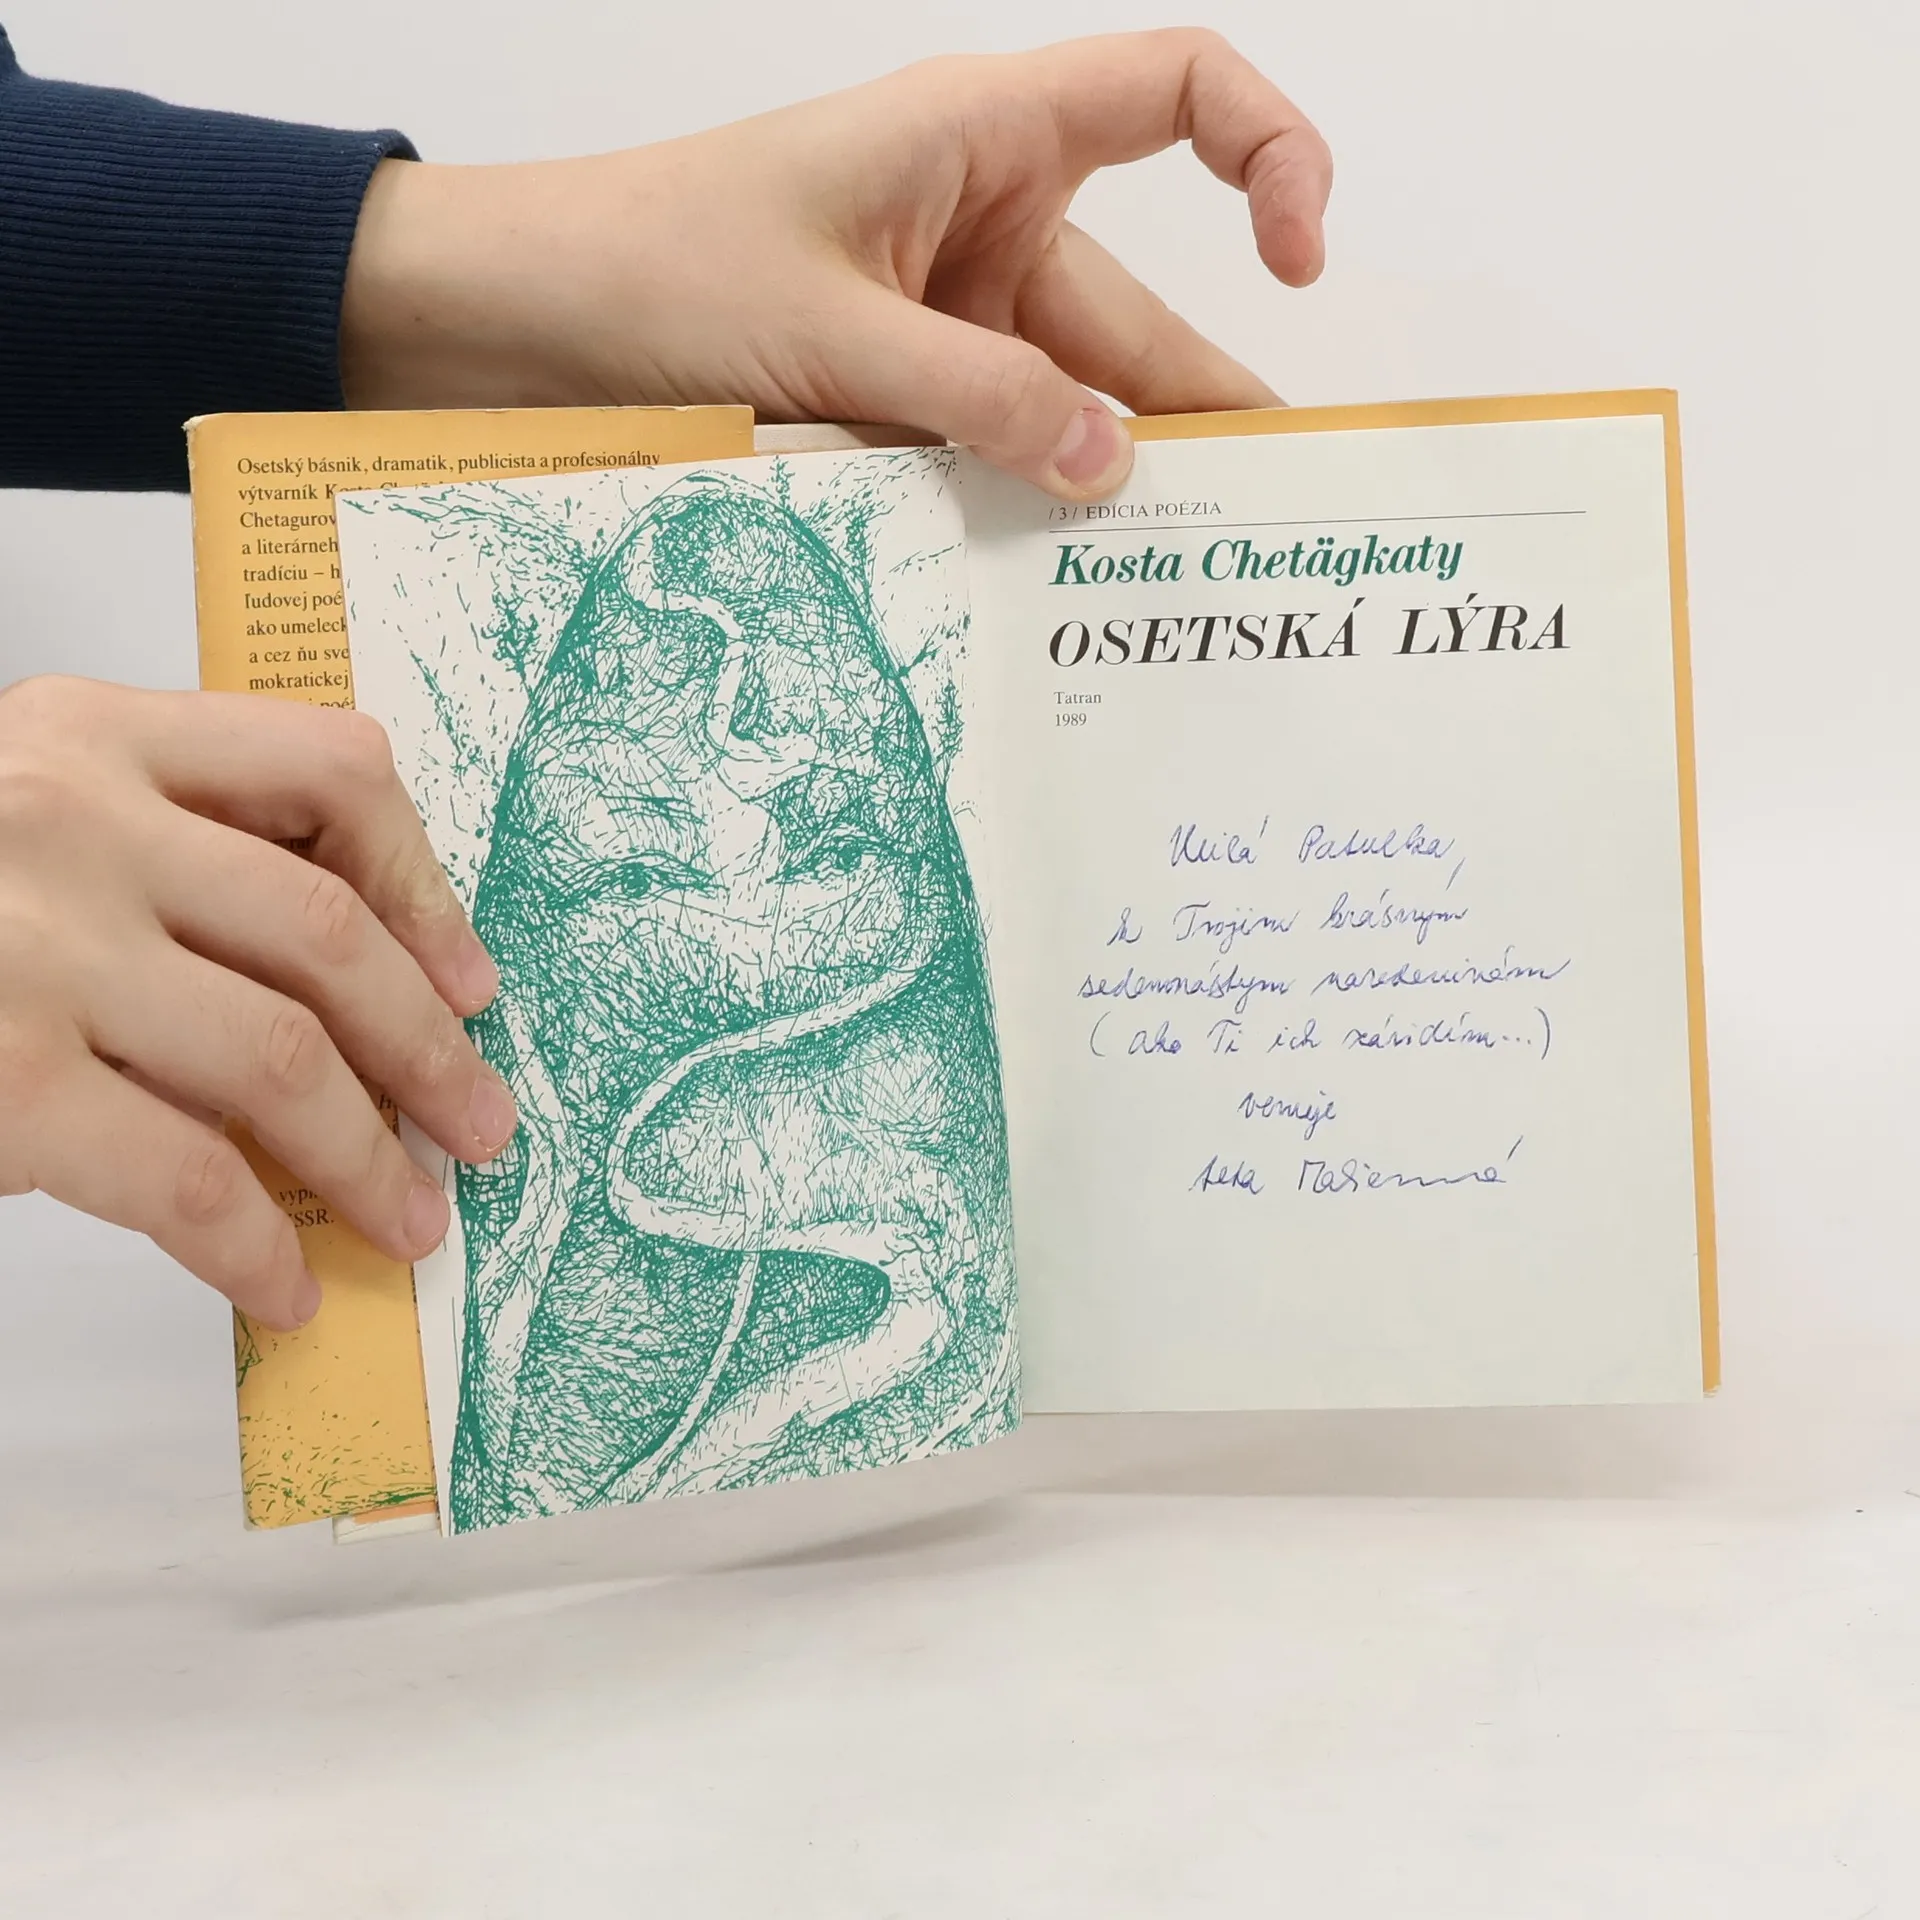 Osetský básnik, dramatik, publicista a profesionálny
výtvarník Kosta
Chetagurov
a literárneh
tradíciu – h
ľudovej poé
ako umeleck
a cez ňu sve
mokratickej
poé
vypl
SSR.
/ 3 / EDÍCIA POÉZIA
Kosta Chetägkaty
OSETSKÁ LÝRA
Tatran
1989
Milá Paťulka,
k Tvojim krásnym
sedemnástym narodeninám
( ako Ti ich závidím...)
venuje
teta